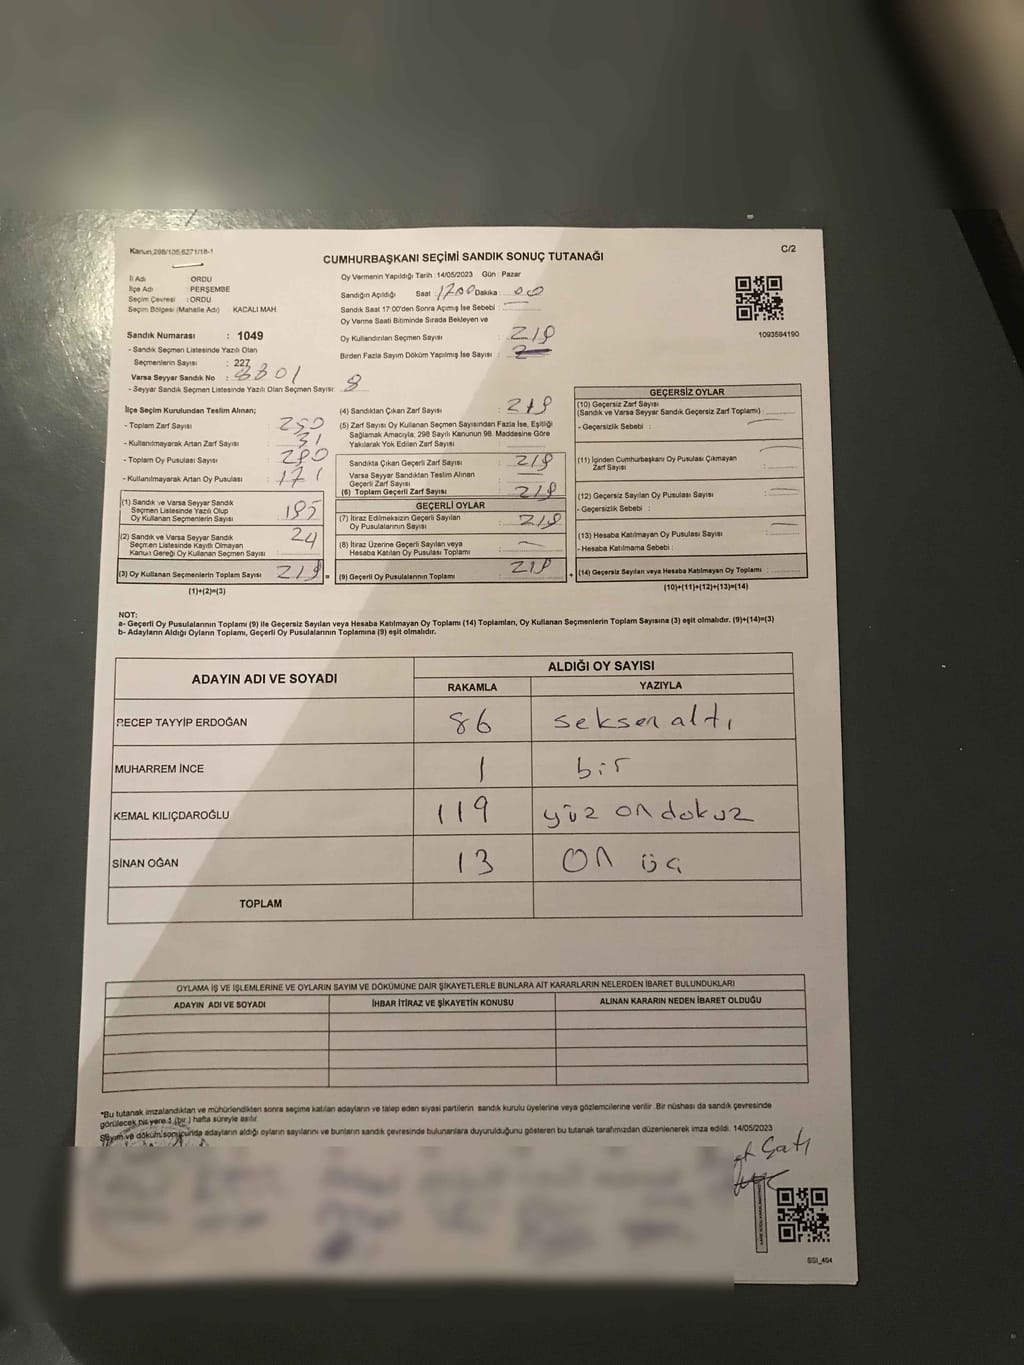 Kanun:298/105,6271/18-1
C/2
CUMHURBAŞKANI SEÇİMİ SANDIK SONUÇ TUTANAĞI
İl Adı ORDU
İlçe Adı : PERŞEMBE
Seçim Çevresi : ORDU
Seçim Bölgesi (Mahalle Adı) KACALI MAH.
Sandık Numarası : 1049
- Sandık Seçmen Listesinde Yazılı Olan
Seçmenlerin Sayısı : 227
Varsa Seyyar Sandık No :
- Seyyar Sandık Seçmen Listesinde Yazılı Olan Seçmen Sayısı: 8
Oy Vermenin Yapıldığı Tarih : 14/05/2023 Gün : Pazar
Sandığın Açıldığı Saat : 1700 Dakika : 00
Sandık Saat 17:00'den Sonra Açımış İse Sebebi :
Oy Verme Saati Bitiminde Sırada Bekleyen ve
Oy Kullandırılan Seçmen Sayısı : 219
Birden Fazla Sayım Döküm Yapılmış İse Sayısı :
1093594190
İlçe Seçim Kurulundan Teslim Alınan;
- Toplam Zarf Sayısı : 250
- Kullanılmayarak Artan Zarf Sayısı : 31
- Toplam Oy Pusulası Sayısı :
- Kullanılmayarak Artan Oy Pusulası : 171
(1) Sandık ve Varsa Seyyar Sandık
Seçmen Listesinde Yazılı Olup
Oy Kullanan Seçmenlerin Sayısı 195
(2) Sandık ve Varsa Seyyar Sandık
Seçmen Listesinde Kayıtlı Olmayan
Kanun Gereği Oy Kullanan Seçmen Sayısı 24
(3) Oy Kullanan Seçmenlerin Toplam Sayısı 219 =
(1)+(2)=(3)
(4) Sandıktan Çıkan Zarf Sayısı : 219
(5) Zarf Sayısı Oy Kullanan Seçmen Sayısından Fazla İse, Eşitliği
Sağlamak Amacıyla; 298 Sayılı Kanunun 98. Maddesine Göre
Yakılarak Yok Edilen Zarf Sayısı :
Sandıkta Çıkan Geçerli Zarf Sayısı : 219
Varsa Seyyar Sandıktan Teslim Alınan
Geçerli Zarf Sayısı :
(6) Toplam Geçerli Zarf Sayısı : 219
GEÇERLİ OYLAR
(7) İtiraz Edilmeksizin Geçerli Sayılan
Oy Pusulalarının Sayısı : 219
(8) İtiraz Üzerine Geçerli Sayılan veya
Hesaba Katılan Oy Pusulası Toplamı :
(9) Geçerli Oy Pusulalarının Toplamı : 219 +
GEÇERSİZ OYLAR
(10) Geçersiz Zarf Sayısı
(Sandık ve Varsa Seyyar Sandık Geçersiz Zarf Toplamı) :
- Geçersizlik Sebebi :
(11) İçinden Cumhurbaşkanı Oy Pusulası Çıkmayan
Zarf Sayısı :
(12) Geçersiz Sayılan Oy Pusulası Sayısı :
- Geçersizlik Sebebi :
(13) Hesaba Katılmayan Oy Pusulası Sayısı :
- Hesaba Katılmama Sebebi :
(14) Geçersiz Sayılan veya Hesaba Katılmayan Oy Toplamı :
(10)+(11)+(12)+(13)=(14)
NOT:
a- Geçerli Oy Pusulalarının Toplamı (9) ile Geçersiz Sayılan veya Hesaba Katılmayan Oy Toplamı (14) Toplamları, Oy Kullanan Seçmenlerin Toplam Sayısına (3) eşit olmalıdır. (9)+(14)=(3)
b- Adayların Aldığı Oyların Toplamı, Geçerli Oy Pusulalarının Toplamına (9) eşit olmalıdır.
ADAYIN ADI VE SOYADI
ALDIĞI OY SAYISI
RAKAMLA YAZIYLA
RECEP TAYYİP ERDOĞAN 86 seksen altı
MUHARREM İNCE 1 bir
KEMAL KILIÇDAROĞLU 119 yüz on dokuz
SİNAN OĞAN 13 on üç
TOPLAM
OYLAMA İŞ VE İŞLEMLERİNE VE OYLARIN SAYIM VE DÖKÜMÜNE DAİR ŞİKAYETLERLE BUNLARA AİT KARARLARIN NELERDEN İBARET BULUNDUKLARI
ADAYIN ADI VE SOYADI İHBAR İTİRAZ VE ŞİKAYETİN KONUSU ALINAN KARARIN NEDEN İBARET OLDUĞU
*Bu tutanak imzalandıktan ve mühürlendikten sonra seçime katılan adayların ve talep eden siyasi partilerin sandık kurulu üyelerine veya gözlemcilerine verilir. Bir nüshası da sandık çevresinde
görülecek bir yere 1 (bir ) hafta süreyle asılır.
Sayım ve döküm sonucunda adayların aldığı oyların sayılarını ve bunların sandık çevresinde bulunanlara duyurulduğunu gösteren bu tutanak tarafımızdan düzenlenerek imza edildi. 14/05/2023
SSI_494